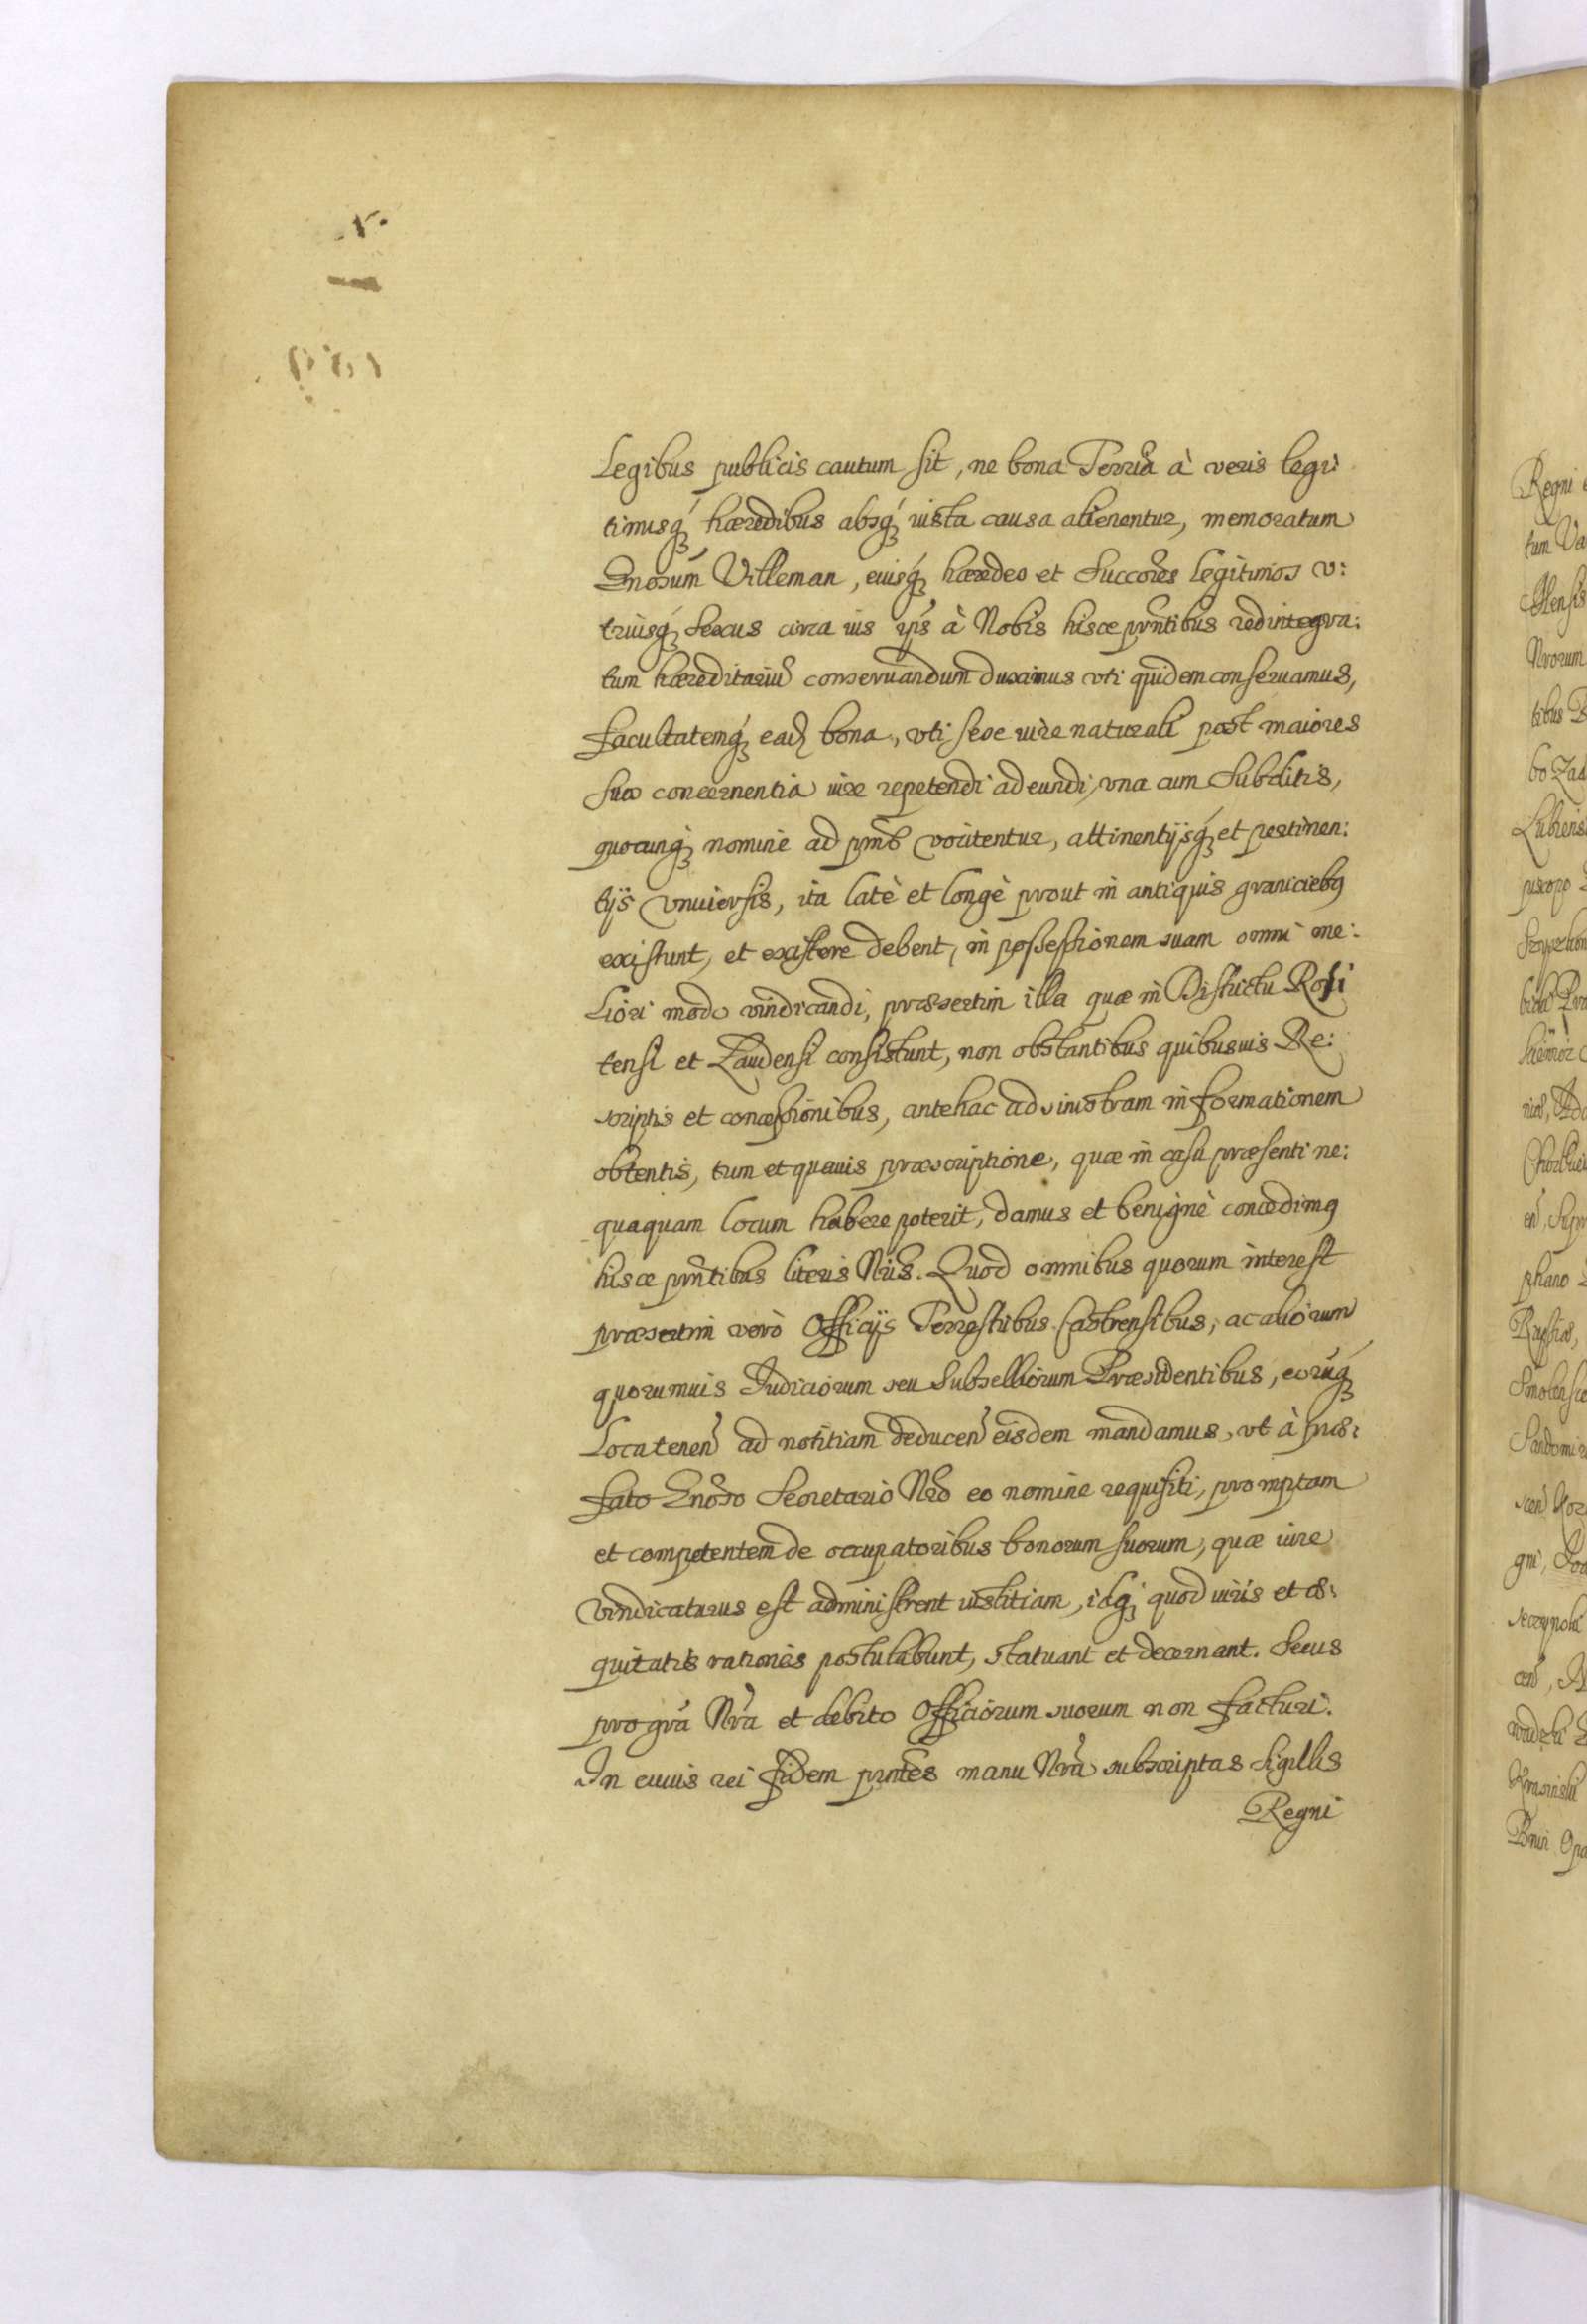 Legibus publicis cautum sit, ne bona Terria à veris legi:
timisq́ꝫ hæredibus absq́ꝫ iusta causa alienentur, memoratum
Gnosum Villeman, eiusq́ꝫ hæredes et Succores legitimos v:
triusq́ꝫ Sexus circa ius ips à Nobis hisce pntibus redintegra:
tum hæreditariū conseruandum duximus vti quidem conseruamus,
facultatemq́ꝫ ead bona, vti sese iure naturali post maiores
suos concernentia iure repetendi adeundi, vna cum Subditis,
quocunqꝫ nomine ad pns vocitentur, attinentijsq́ꝫ et pertinen:
tijs vniuersis, ita latè et longè prout in antiquis graniciebꝯ
existunt, et existere debent, in possessionem suam omni me:
liori modo vindicandi, præsertim illa quæ in Districtu Rosi
tensi et Laudensi consistunt, non obstantibus quibusuis Re:
scriptis et concessionibus, antehac ad sinistram informationem
obtentis, tum et quauis præscriptione, quæ in casu præsenti ne:
quaquam locum habere poterit, damus et benignè concedimꝯ
hisce pntibus literis Nris. Quod omnibus quorum interest
præsertim verò Officijs Terrestribus Castrensibus, ac aliorum
quorumuis Judiciorum seu Subselliorum Præsidentibus, eorūq́ꝫ
Locatenen ad notitiam deducen eisdem mandamus, vt à præ:
fato Gnoso Secretario Nro eo nomine requisiti, promptam
et competentem de occupatoribus bonorum suorum, quæ iure
vindicaturus est administrent iustitiam, idqꝫ quod iuris et æ:
quitatis rationes postulabunt, statuant et decernant. Secus
pro gra Nra et debito Officiorum suorum non facturi.
In cuius rei fidem pntes manu Nra subscriptas Sigillis
Regni